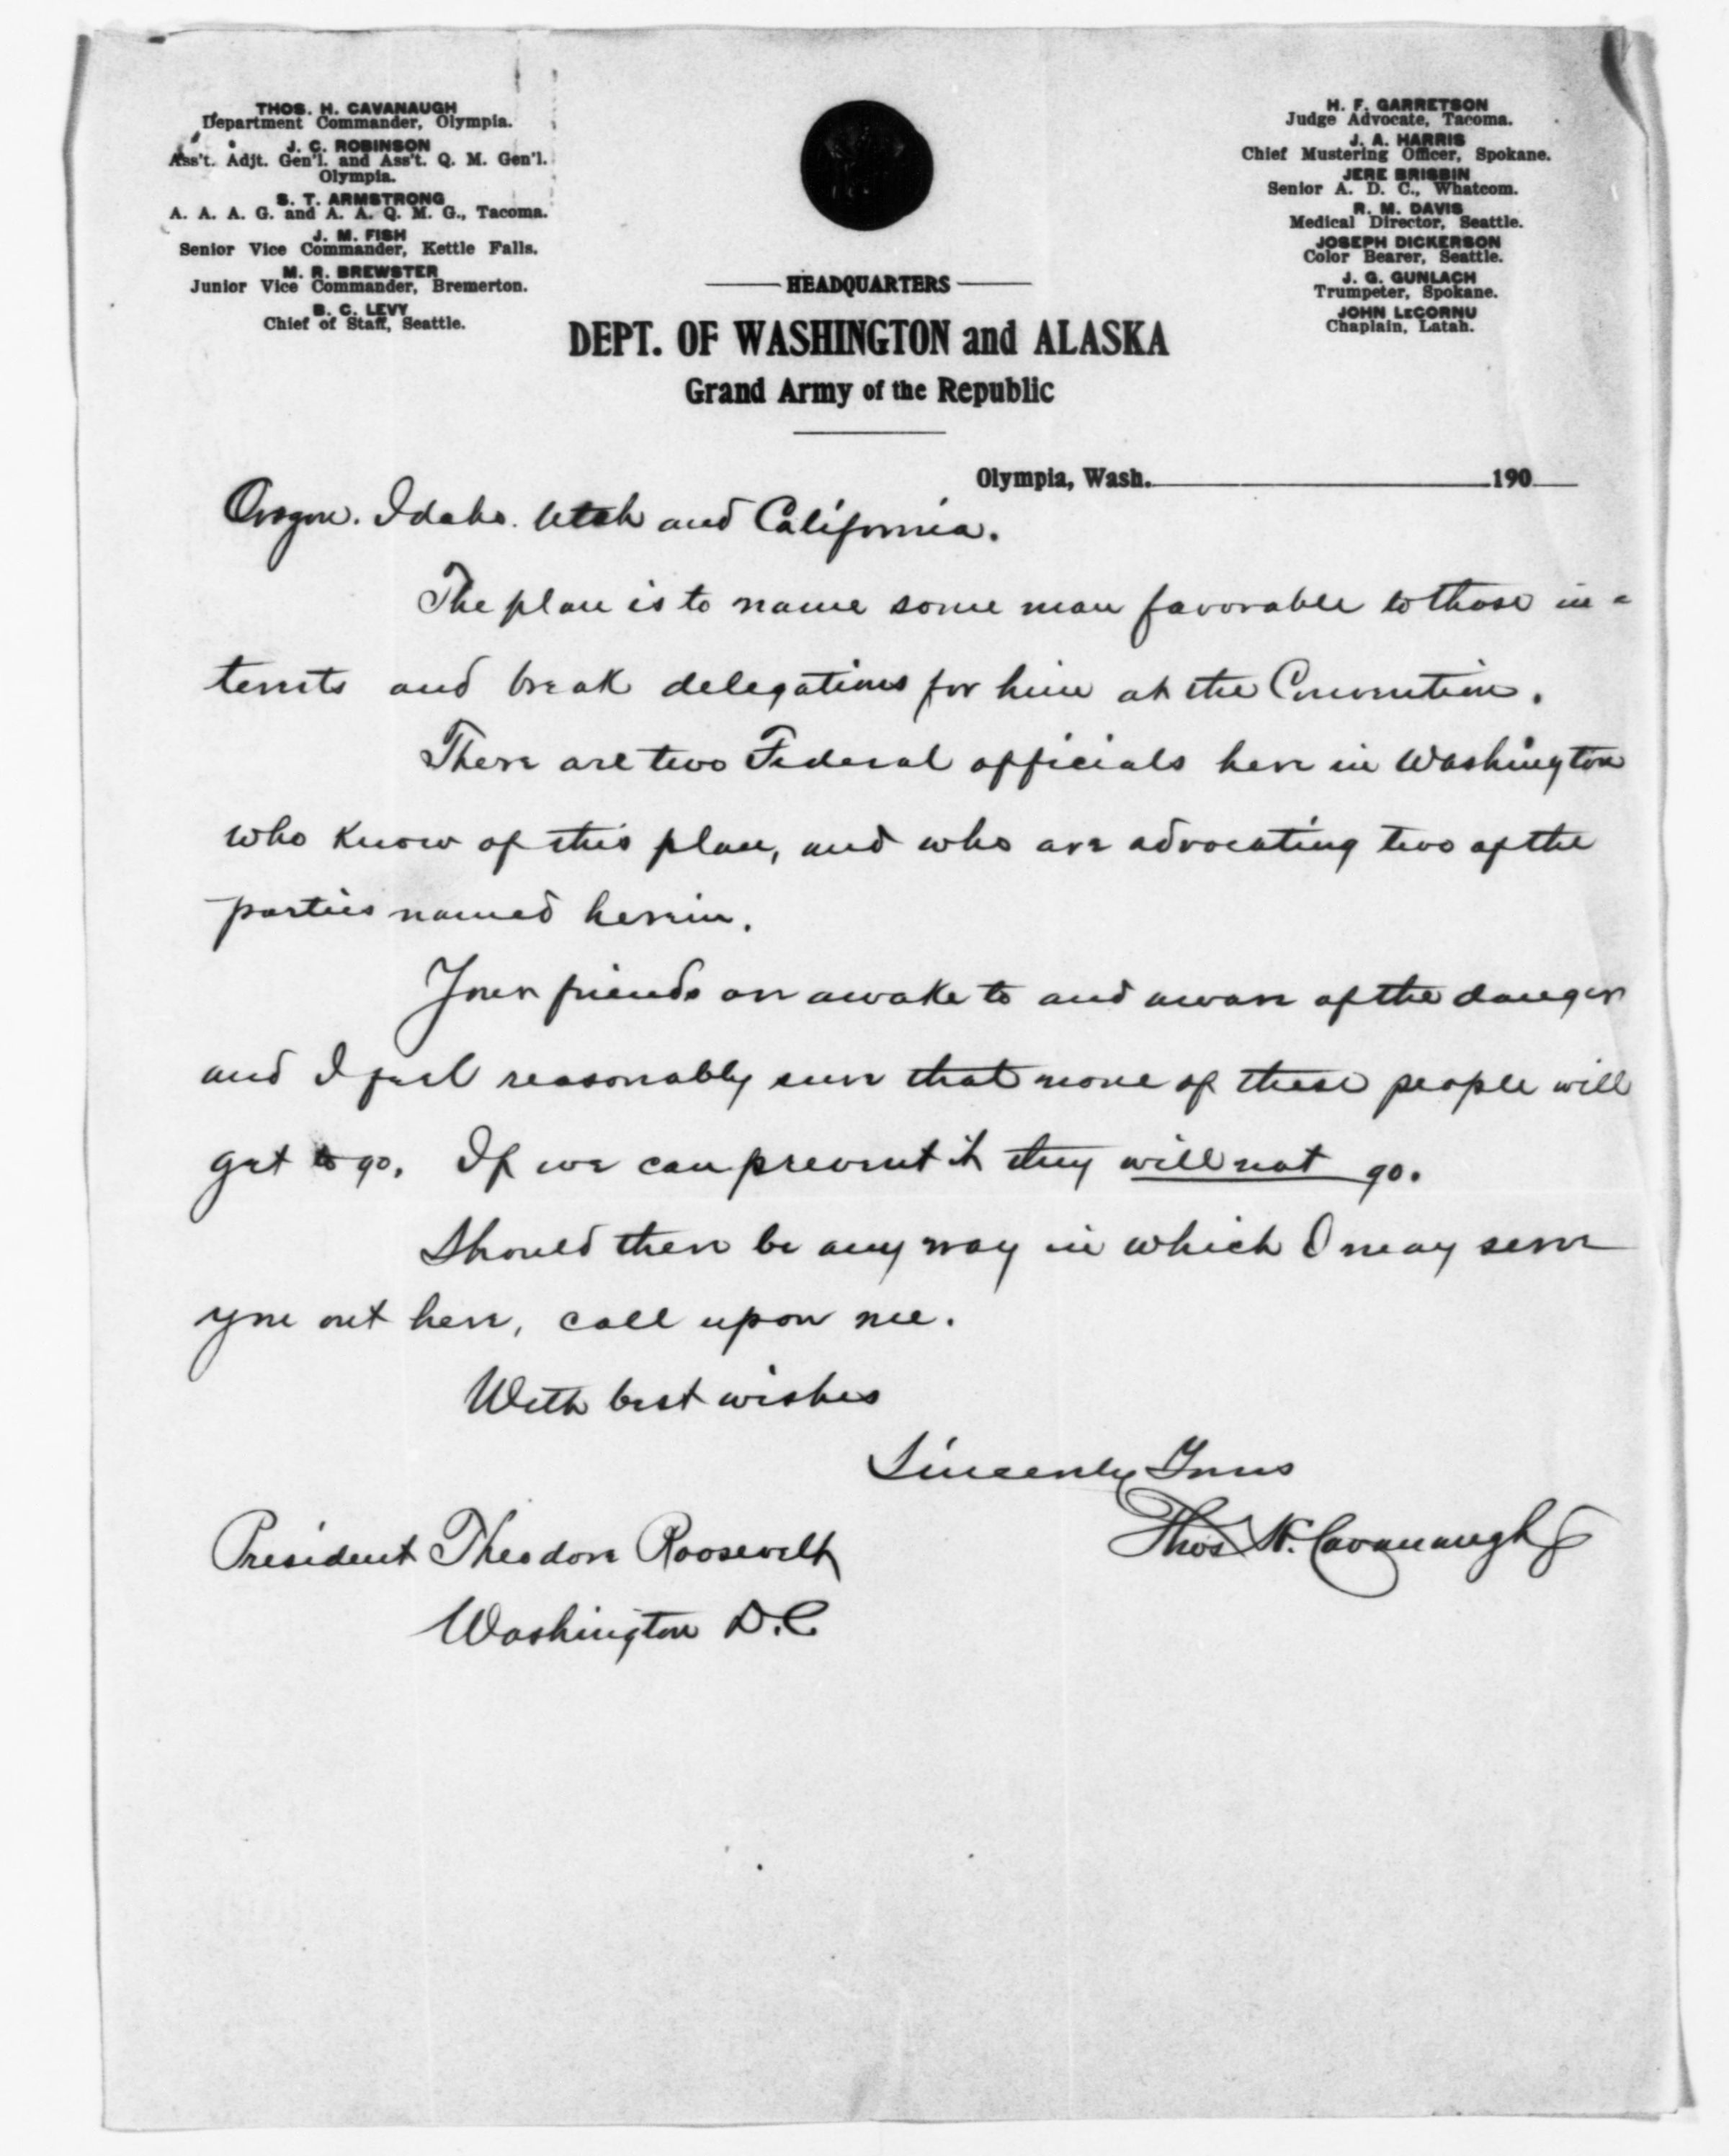 THOS. H. CAVANAUGH
Department Commander, Olympia.
J. C. ROBINSON
Ass't. Adjt. Gen'l. and Ass't. Q. M. Gen'l.
Olympia.
S. T. ARMSTRONG
A. A. A. G. and A. A. Q. M. G., Tacoma.
J. M. FISH
Senior Vice Commander, Kettle Falls.
M. R. BREWSTER
Junior Vice Commander, Bremerton.
B. C. LEVY
Chief of Staff, Seattle.
H. F. GARRETSON
Judge Advocate, Tacoma.
J. A. HARRIS
Chief Mustering Officer, Spokane.
JERE BRISBIN
Senior A. D. C., Whatcom.
R. M. DAVIS
Medical Director, Seattle.
JOSEPH DICKERSON
Color Bearer, Seattle.
J. G. GUNLACH
Trumpeter, Spokane.
JOHN LeCORNU
Chaplain, Latah.
HEADQUARTERS
DEPT. OF WASHINGTON and ALASKA
Grand Army of the Republic
Olympia, Wash. 190
Oregon. Idaho. Utah and California.
The plan is to name some man favorable to those in-
terests and break delegations for him at the Convention.
There are two Federal officials here in Washington
who know of this plan, and who are advocating two of the
parties named herein.
Your friends are awake to and aware of the danger
and I feel reasonably sure that none of these people will
get to go. If we can prevent it they will not go.
Should there be any way in which I may serve
you out here, call upon me.
With best wishes
Sincerely Yours
Thos H. Cavanaugh
President Theodore Roosevelt
Washington D.C.